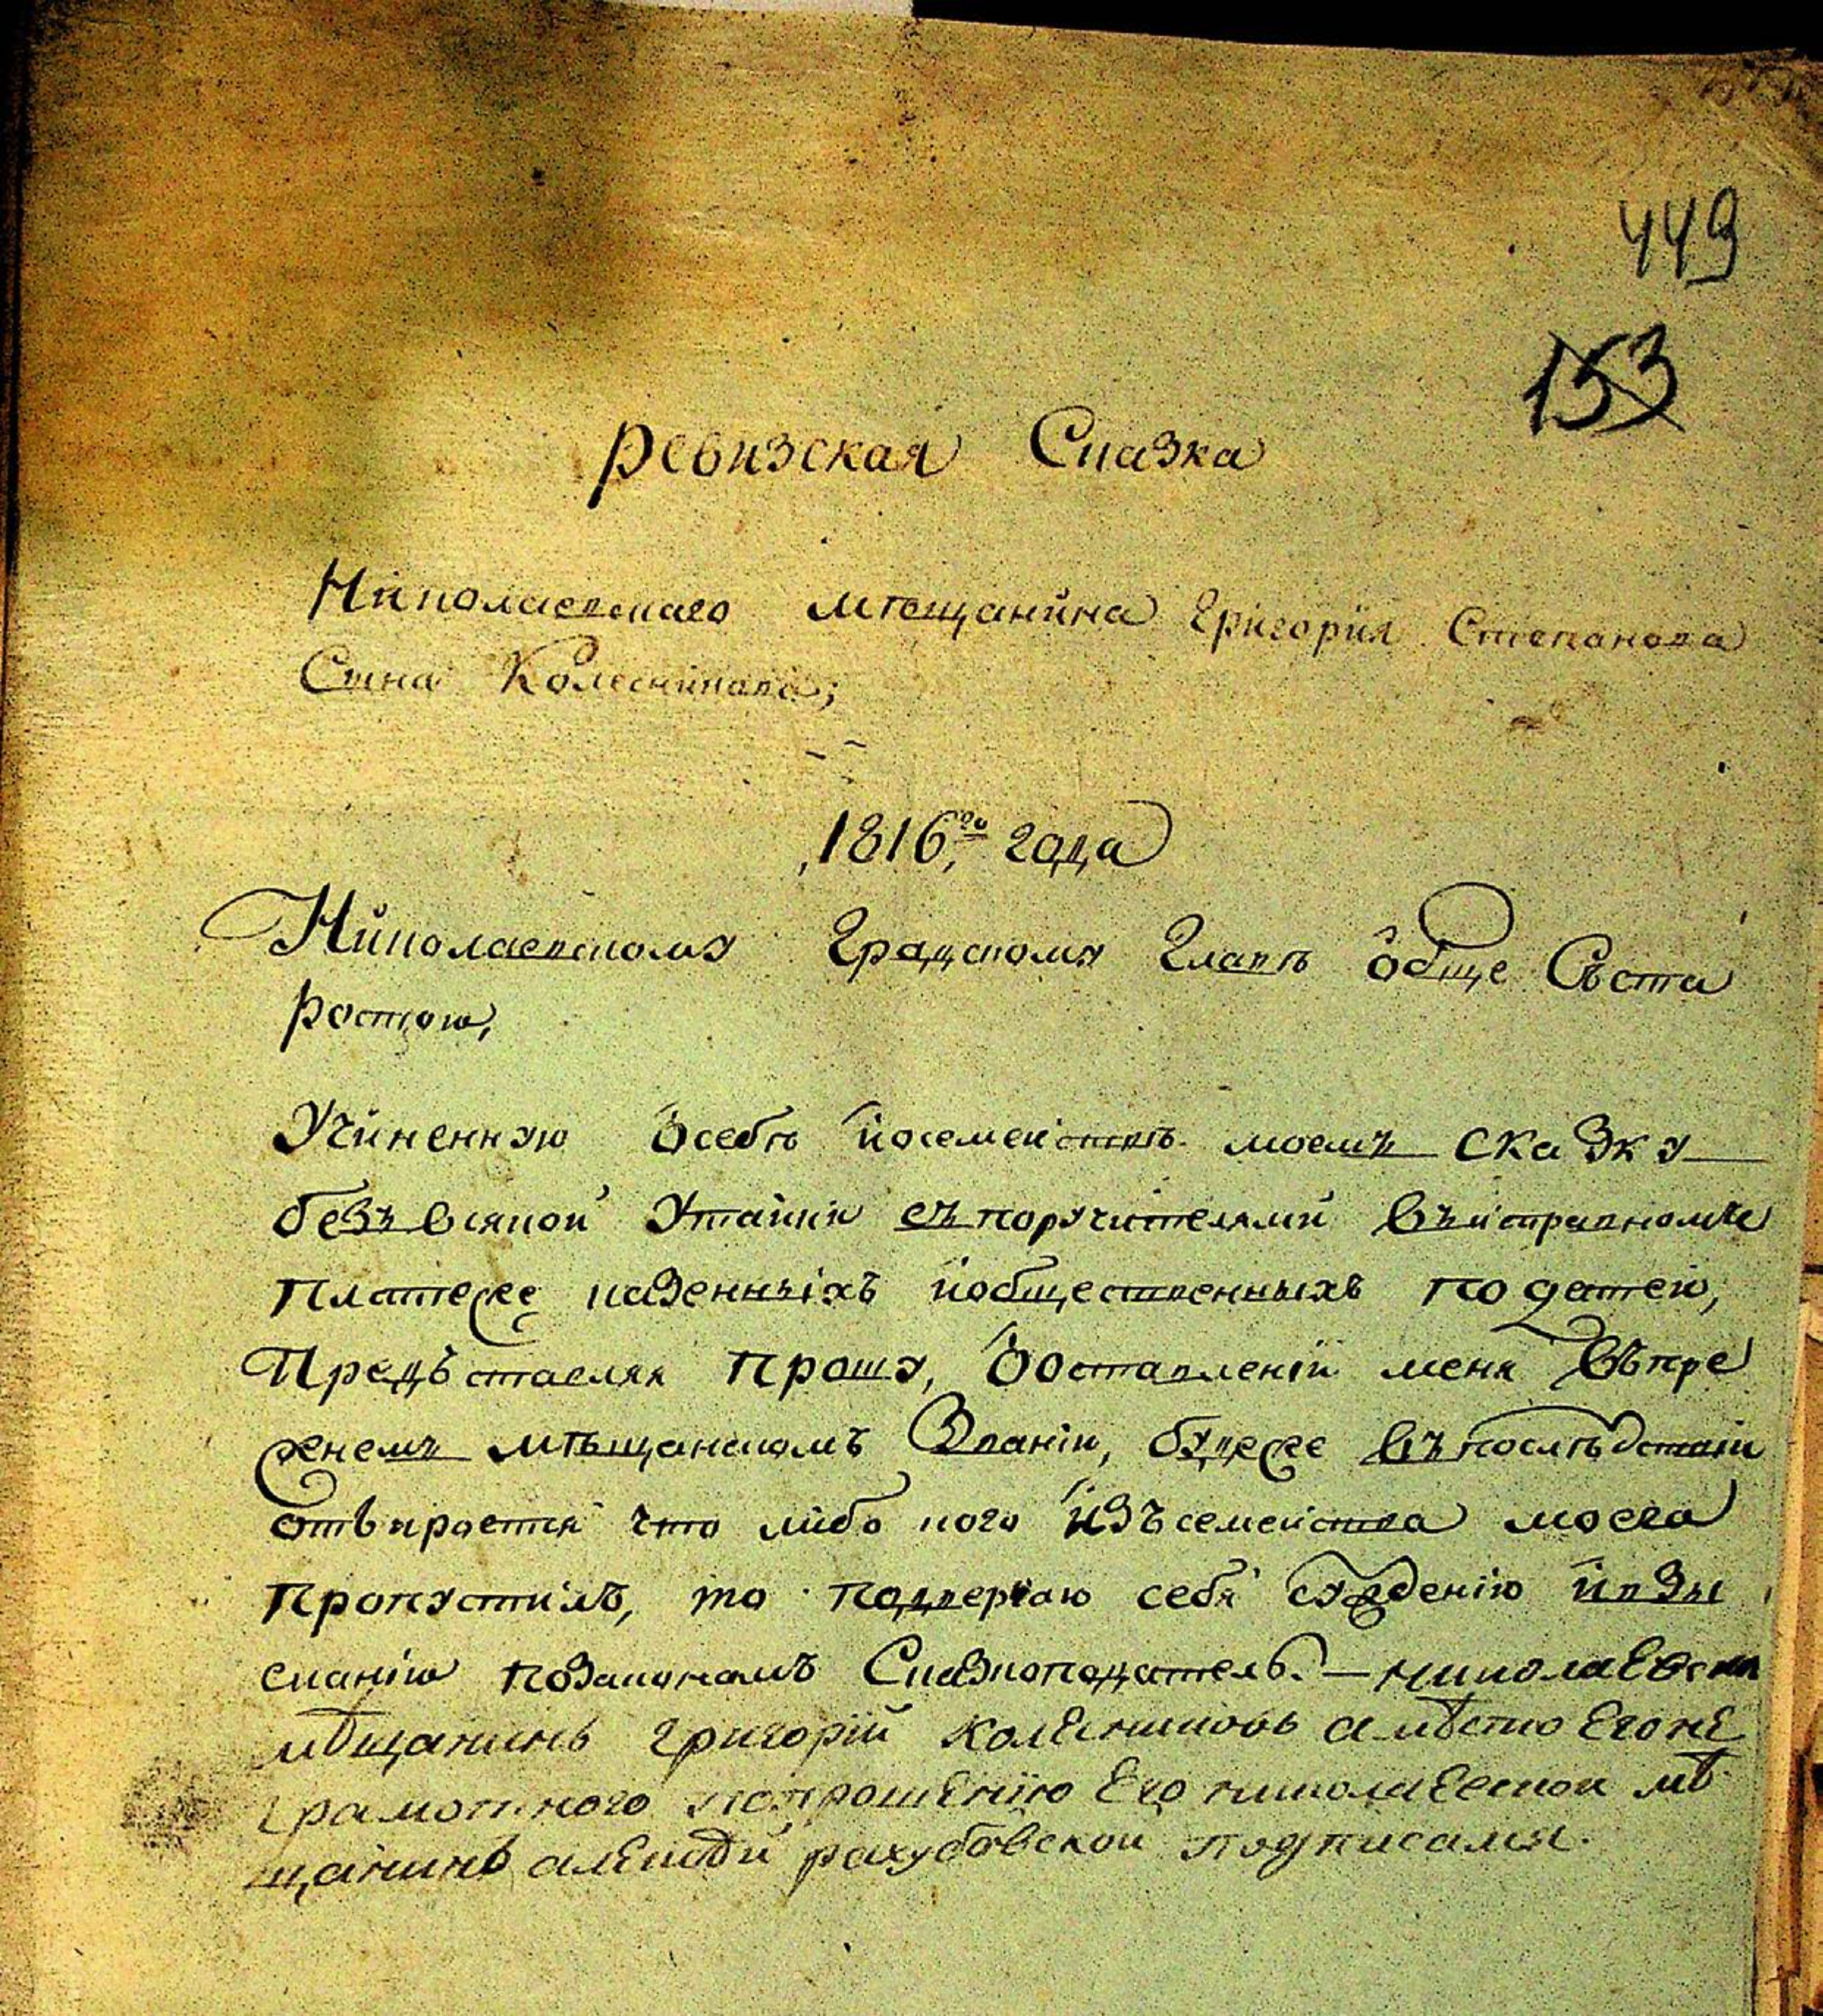 449
153
Ревизская Сказка
Николаевскаго мѣщанина Григория Степанова
Сына Колесникова;
1816го года
Николаевскому Градскому Главѣ обще Съ ста
ростою,
Учиненную о себѣ и о семействѣ моемъ сказку
безъ всякой Утайки съ поручителями въ исправномъ
платеже казенныхъ и общественныхъ податей,
Предъставляя прошу, о оставленіи меня въ пре
женемъ мѣщанскомъ Званіи, будеже въ последствіи
отъкроется что либо кого изъ семейства моего
пропустилъ, то подвергаю себя суждению и взы
сканію по законамъ Сказкоподатель. — николаевски
мѣщанинъ григорий колесниковъ а мѣсто Его не
грамотного по прошению Его николаевской мѣ
щанинъ алексѣй рахубовской подписался.